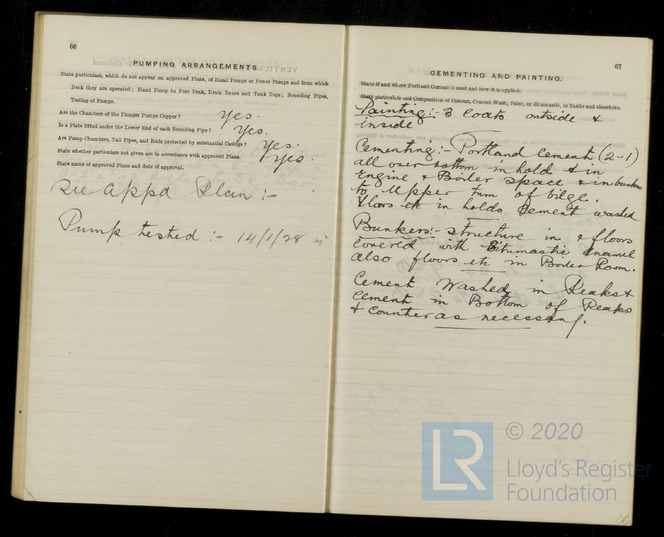 66
PUMPING ARRANGEMENTS.
State particulars, which do not appear on approved Plans, of Hand Pumps or Power Pumps and from which
Deck they are operated; Hand Pump to Fore Peak, Drain Boxes and Tank Tops; Sounding Pipes,
Testing of Pumps.
Are the Chambers of the Plunger Pumps Copper? Yes.
Is a Plate fitted under the Lower End of each Sounding Pipe? Yes.
Are Pump Chambers, Tail Pipes, and Rods protected by substantial Casings? Yes.
State whether particulars not given are in accordance with approved Plans. Yes.
State name of approved Plans and date of approval.
See Appd Plan :-
Pump tested :- 14/1/28
67
CEMENTING AND PAINTING.
State if and where Portland Cement is used and how it is applied.
State particulars and Composition of Cement, Cement Wash, Paint, or Bitumastic, in Tanks and elsewhere.
Painting :- 3 Coats outside &
inside
Cementing :- Portland Cement (2-1)
all over bottom in hold & in
Engine & Boiler space & in bunkers
to Upper turn of bilge.
Floors etc in holds Cement washed
Bunkers :- structure in & floors
covered with Bitumastic Enamel
also floors etc in Boiler Room.
Cement Washed in Peaks &
Cement in Bottom of Peaks
& Counter as necessary.
© 2020
LR
Lloyd's Register
Foundation